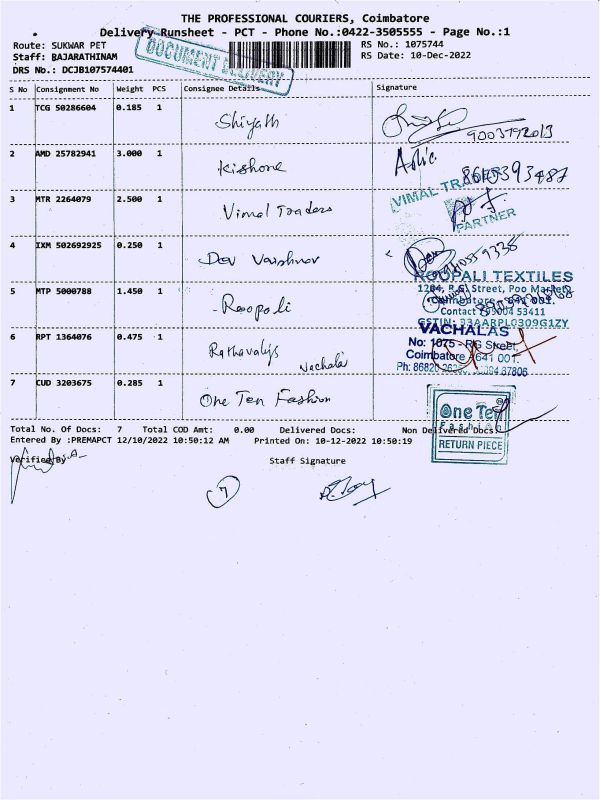 THE PROFESSIONAL COURIERS, Coimbatore
Delivery Runsheet - PCT - Phone No.:0422-3505555 - Page No.:1
Route: SUKWAR PET
RS No.: 1075744
Staff: BAJARATHINAM
RS Date: 10-Dec-2022
DRS No.: DCJB107574401
DOCUMENT DELIVERY
S No Consignment No Weight PCS Consignee Details Signature
1 TCG 50286604 0.185 1 Shiyath
9003792013
2 AMD 25782941 3.000 1 Kishore
3 MTR 2264079 2.500 1 Vimal Traders
VIMAL TRADERS
PARTNER
4 IXM 502692925 0.250 1 Dev Vaishnav
ROOPALI TEXTILES
1204, R.G. Street, Poo Market
Coimbatore - 641 001.
5 MTP 5000788 1.450 1 Roopali
VACHALAS
No: 1675 - RG Street,
Coimbatore 641 001.
6 RPT 1364076 0.475 1 Rathavalijs
Vachalas
7 CUD 3203675 0.285 1 One Ten Fashion
One Ten
Fashion
RETURN PIECE
Total No. Of Docs: 7 Total COD Amt: 0.00 Delivered Docs: Non Delivered Docs:
Entered By :PREMAPCT 12/10/2022 10:50:12 AM Printed On: 10-12-2022 10:50:19
Verified By:
Staff Signature
7